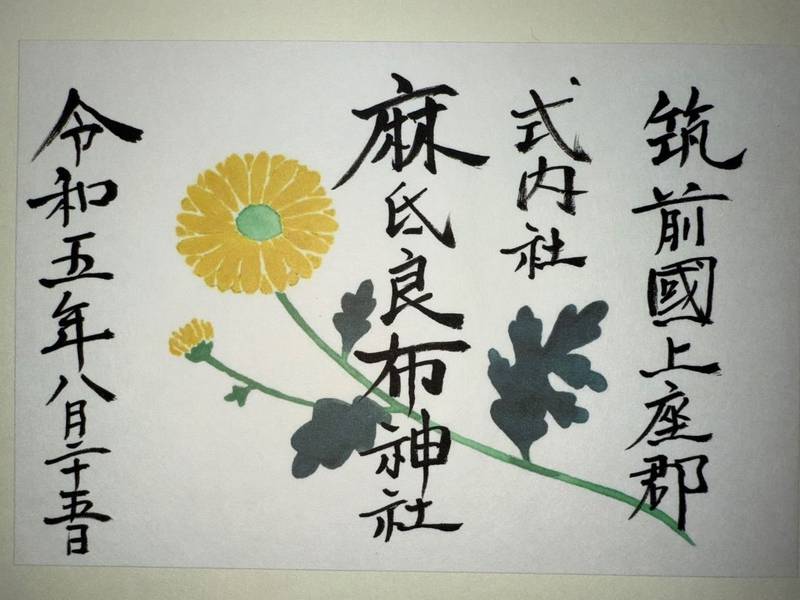 筑前國上座郡
式内社
麻氐良布神社
令和五年八月二十五日